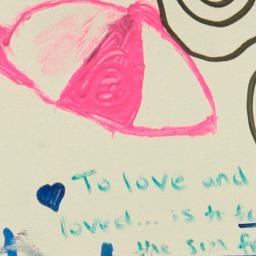 To love and
loved... is to fe
the sun fr